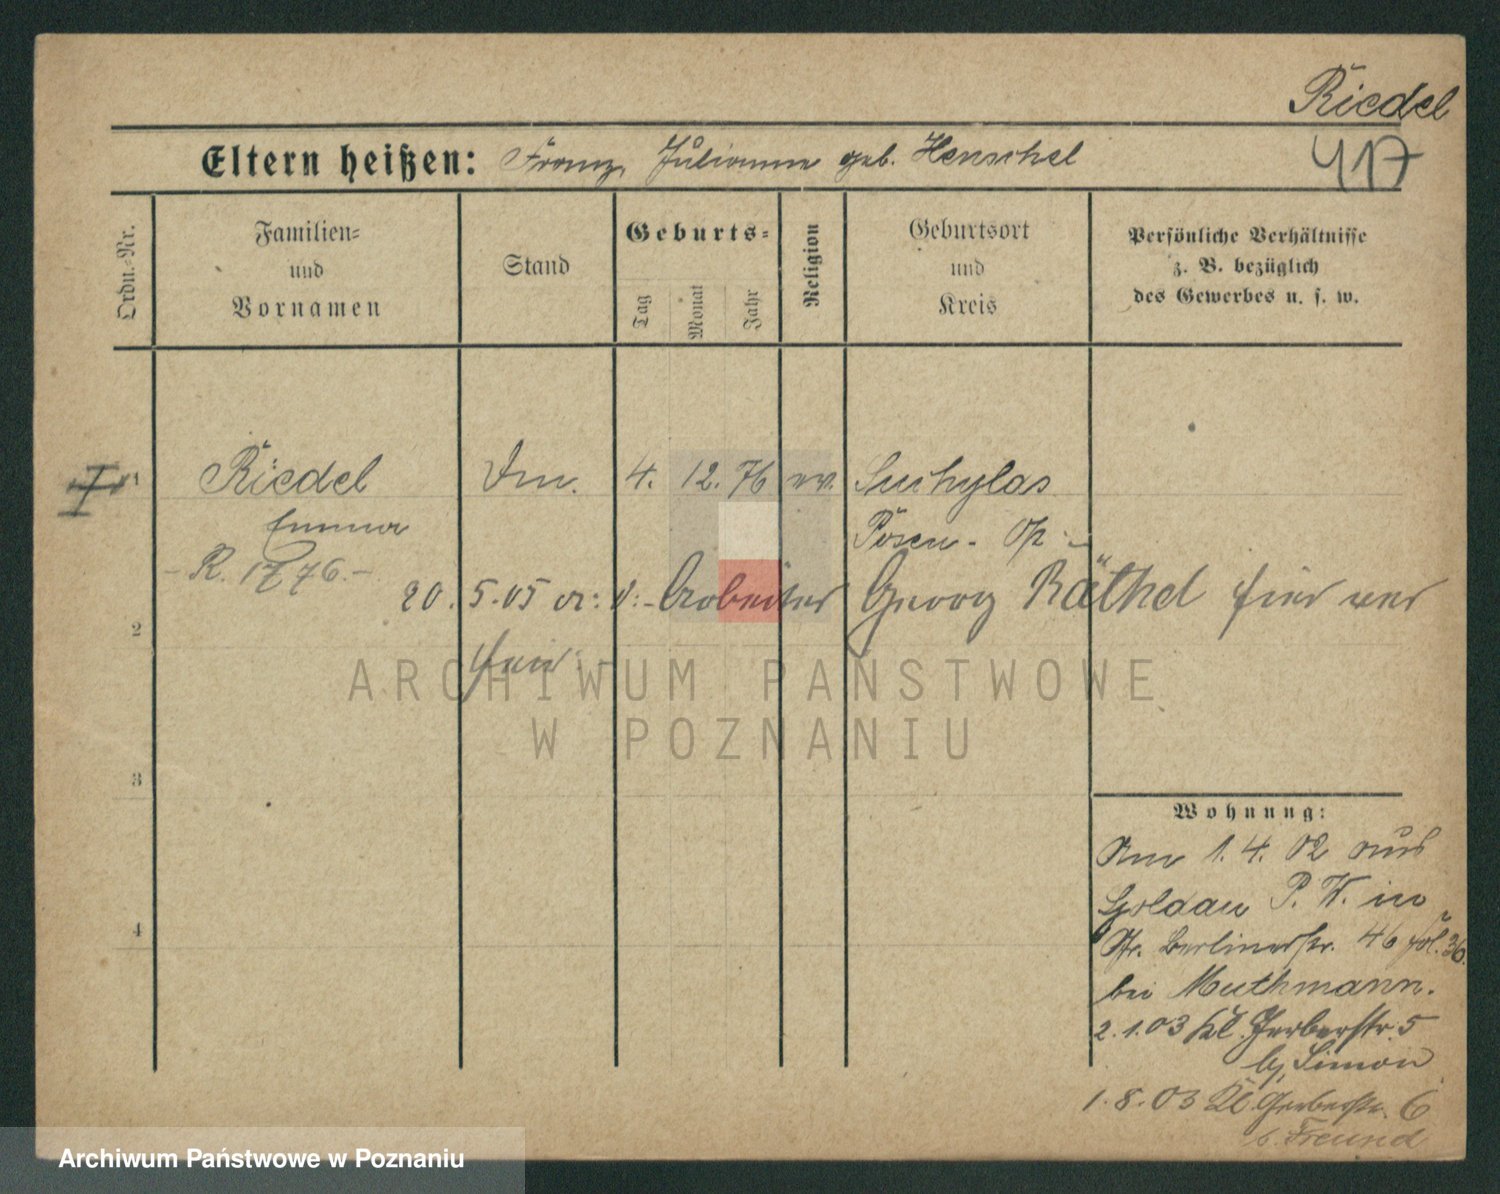 Riedel
417
Eltern heißen: Franz, Julianne geb. Henschel
Ordn.-Nr.
Familien-
und
Vornamen
Stand
Geburts-
Tag
Monat
Jahr
Religion
Geburtsort
und
Kreis
Persönliche Verhältnisse
z. B. bezüglich
des Gewerbes u. s. w.
1 Riedel 4. 12. 76 ev. Suchylas
Emma Posen - O/
- R. 17/76. -
20. 5. 05 a: d: Arbeiter Georg Räthel hier ver
2
hei
3
4
ARCHIWUM PAŃSTWOWE
W POZNANIU
Wohnung:
Am 1. 4. 02 aus
Goldau P. W. in
Gr. Berlinerstr. 46
bei Muthmann.
2. 1. 03 Kl. Gerberstr. 5
bj. Simon
1. 8. 03 Kl. Gerberstr. 6
b. Freund
Archiwum Państwowe w Poznaniu